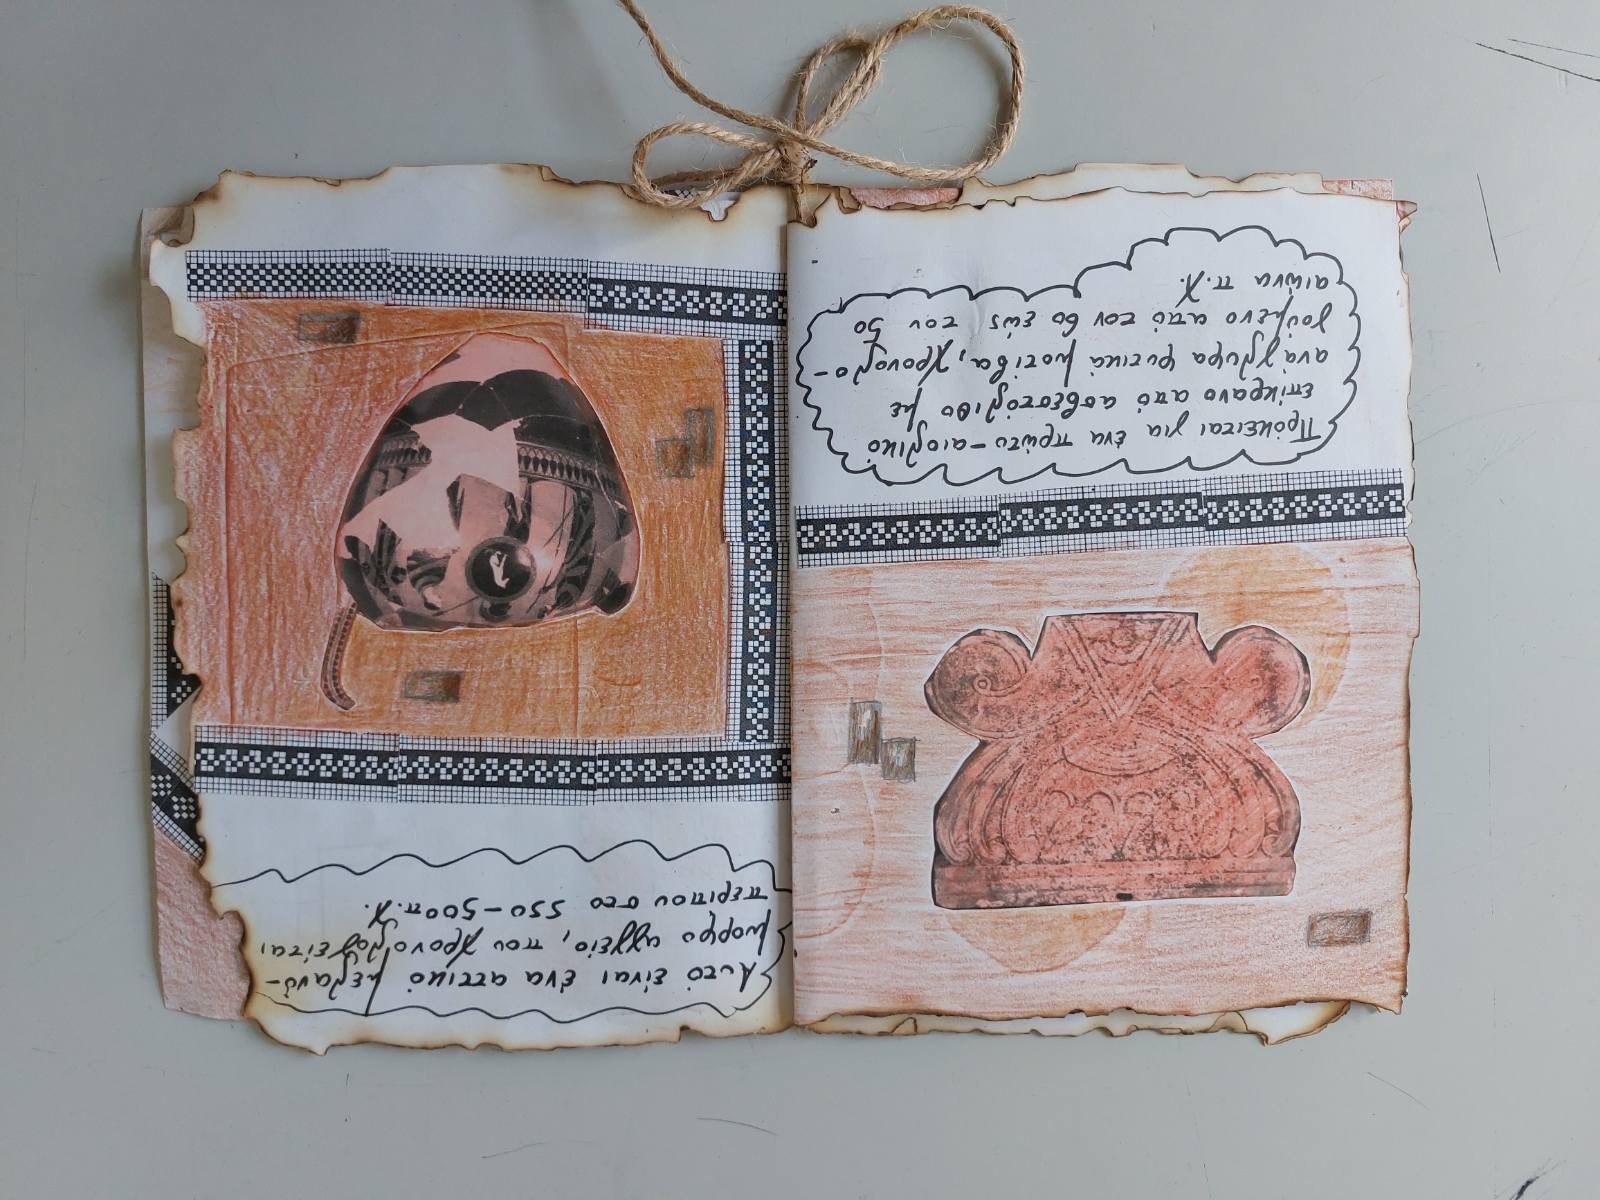 Αυτό είναι ένα αττικό μελανό-
μορφο αγγείο, που χρονολογείται
περίπου στο 550-500 π.Χ.
Πρόκειται για ένα πρώτο-αιολικό
επίκρανο από ασβεστόλιθο με
ανάγλυφα φυτικά μοτίβα, χρονολο-
γούμενο από τον 6ο έως τον 5ο
αιώνα π.Χ.